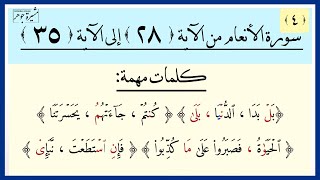 (٤)
سورة الأنعام من الآية (٢٨) إلى الآية (٣٥)
كلمات مهمة:
﴿بَلۡ بَدَا ، الدُّنۡيَا ، بَلَىٰ﴾ ﴿كُنتُمۡ ، جَآءَتۡهُمُ ، يَٰحَسۡرَتَنَا﴾
﴿الۡحَيَوٰةُ ، فَصَبَرُواْ عَلَىٰ مَا كُذِّبُواْ﴾ ﴿فَإِنِ اسۡتَطَعۡتَ ، نَّبَإِيْ﴾